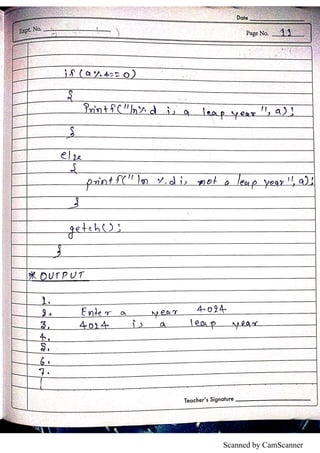 Date
Expt. No.
Page No. 11
if (a%4==0)
{
Printf("\n%d is a leap year", a);
}
else
{
printf("\n %d is not a leap year", a);
}
getch();
}
* OUTPUT
1.
2. Enter a year 4024
3. 4024 is a leap year
4.
5.
6.
7.
Teacher's Signature
Scanned by CamScanner